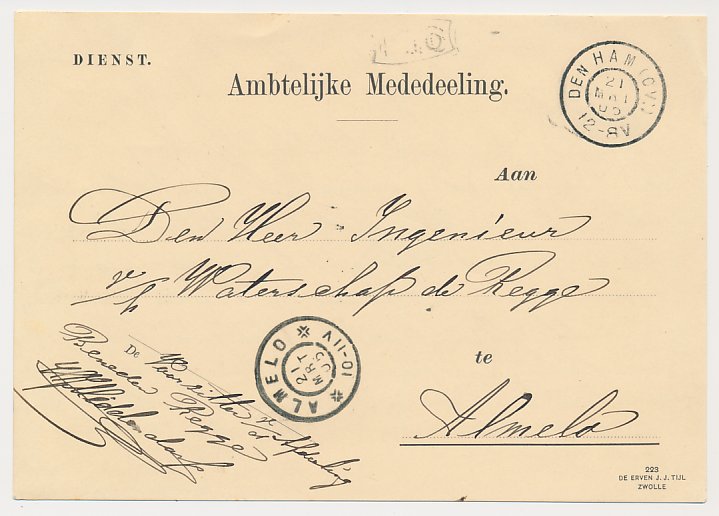 DIENST.
Ambtelijke Mededeeling.
DEN HAM (OV.)
21
MRT
05
12-8V
Aan
Den Heer Ingenieur
v/h Waterschap de Regge
te
Almelo
ALMELO
21
MRT
05
10-11V
De Voorzitter v d Afdeeling
Beneden Regge
223
DE ERVEN J. J. TIJL
ZWOLLE